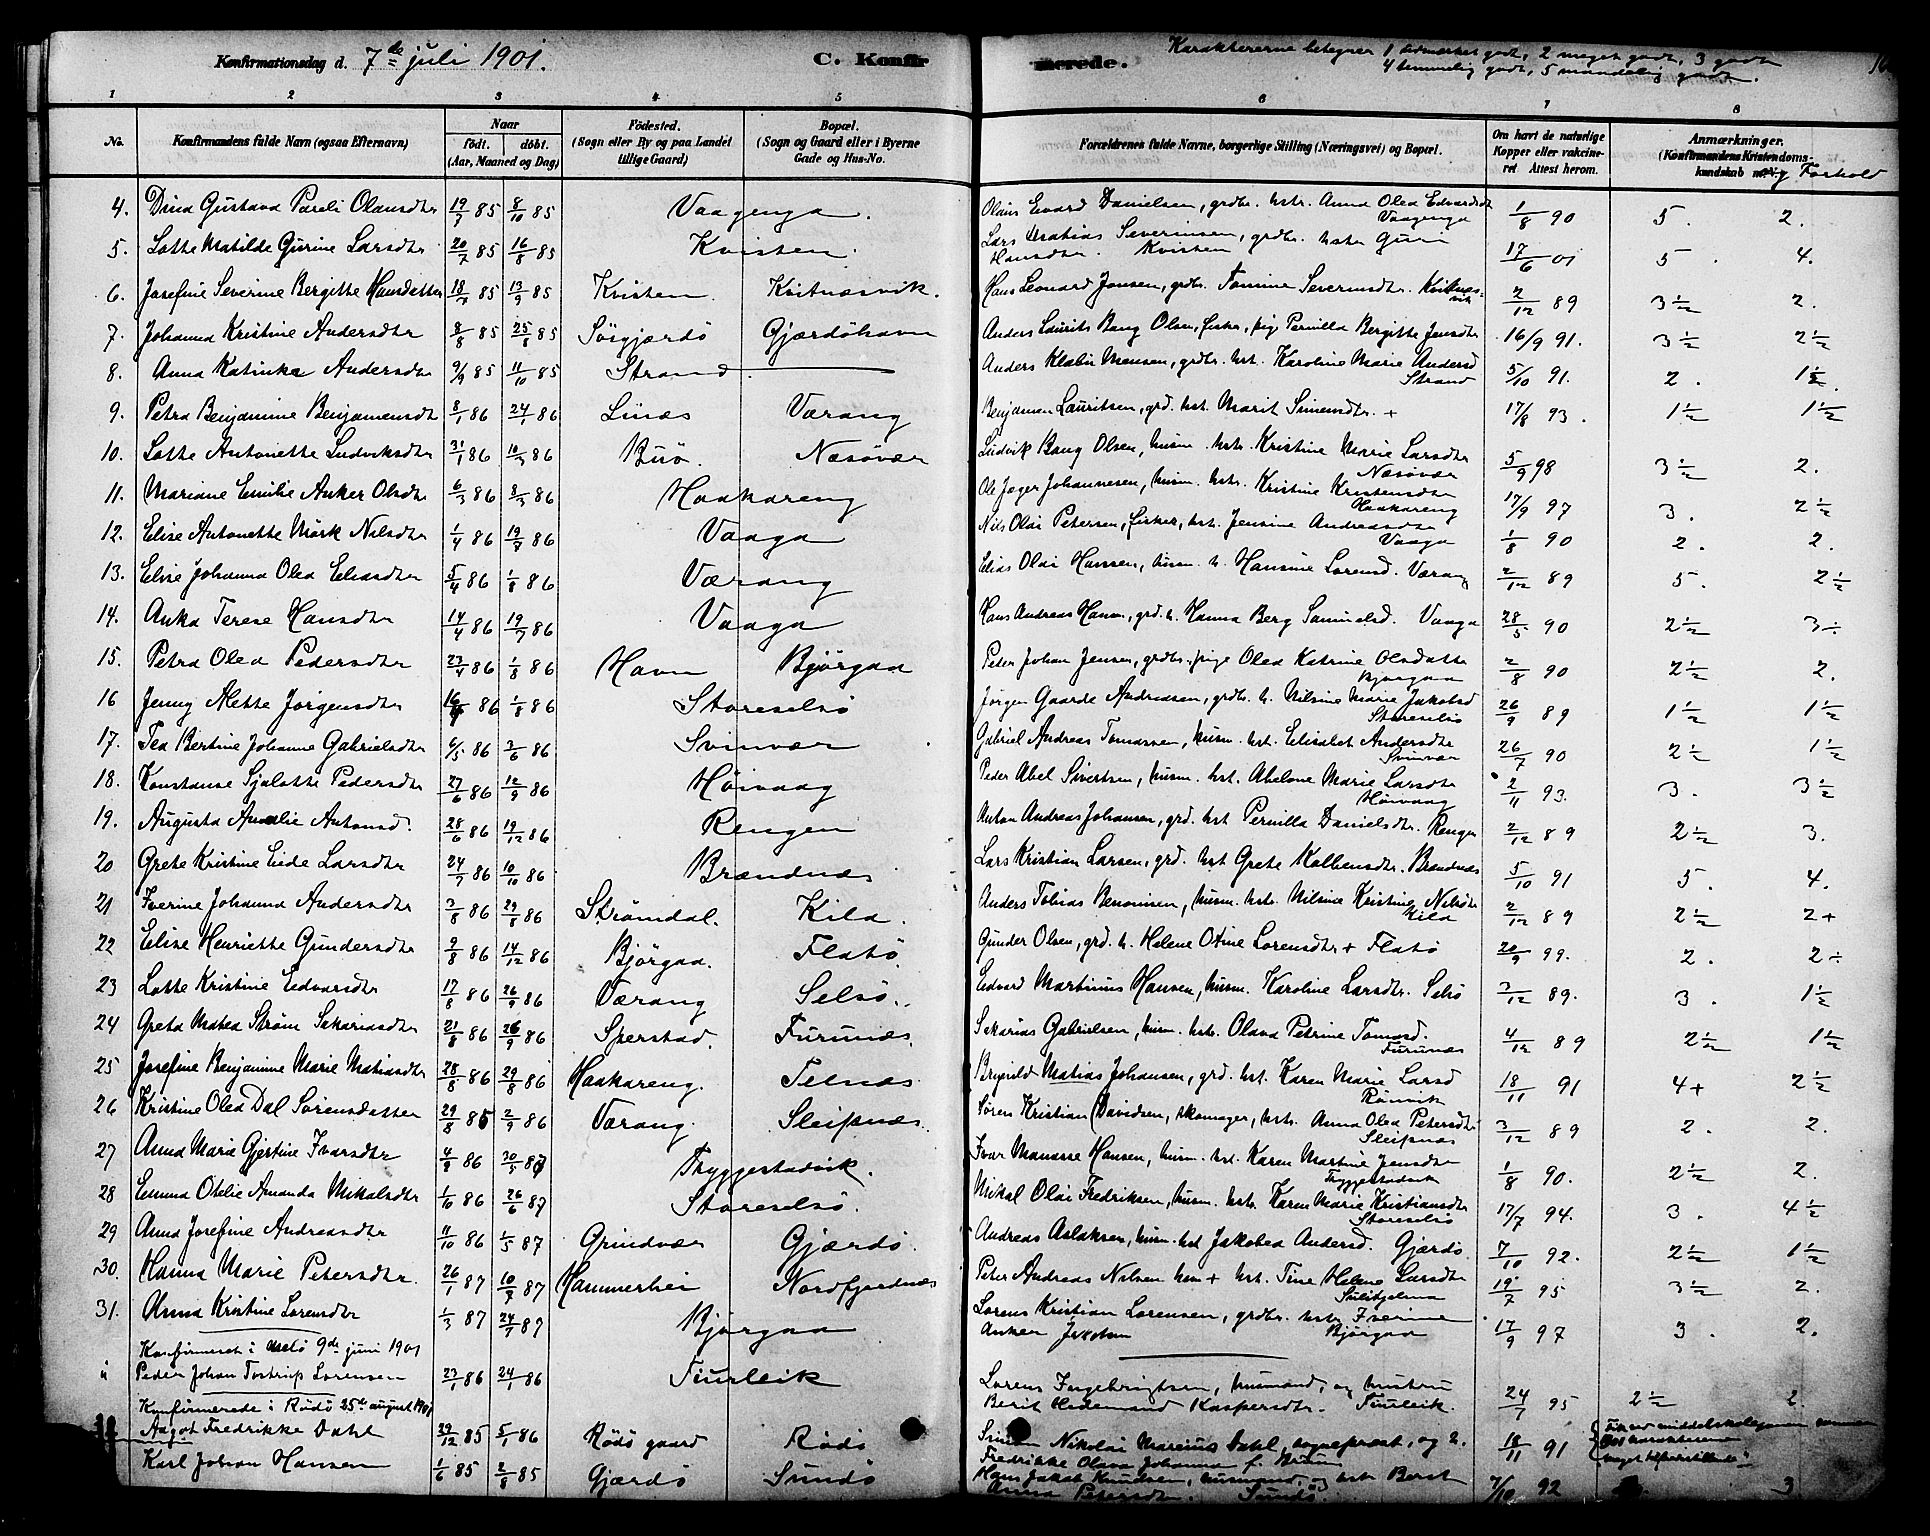 Konfirmationsdag d. 7de juli 1901. C. Konfirmerede. Karaktererne betegner 1 udmærket godt, 2 meget godt, 3 godt
4 temmelig godt, 5 maadelig godt.
1 2 3 4 5 6 7 8
No. Konfirmandens fulde Navn (ogsaa Efternavn) Naar født. døbt. (Aar, Maaned og Dag) Fødested. (Sogn eller By og paa Landet tillige Gaard) Bopæl. (Sogn og Gaard eller i Byerne Gade og Hus-No. Forældrenes fulde Navne, borgerlige Stilling (Næringsvei) og Bopæl. Om havt de naturlige Kopper eller vakcineret Attest herom. Anmærkninger. (Konfirmandens Kristendomskundskab og Forhold
4. Dina Gustava Pareli Olausdtr 19/7 85 8/10 85 Vaagenga. Olaus Evard Danielsen, grdbr. hstr. Anna Olea Edvardsdt Vaagenga 1/8 90 5. 2.
5. Lotte Matilde Gurine Larsdtr 20/7 85 16/8 85 Kvisten. Lars Matias Severinsen, grdbr. hstr Guri Hansdtr. Kvisten 17/6 01 5. 4.
6. Josefine Severine Bergitte Hansdatter 18/7 85 13/9 85 Kvisten. Kvitnæsvik. Hans Leonard Jensen, grdbr. Tomine Severinsdtr. Kvitnæsvik 2/12 89 3½ 2.
7. Johanna Kristine Andersdtr 8/8 85 25/8 85 Sørgjærdø Gjærdøhavn Anders Laurits Bang Olsen, fisker, pig Pernilla Bergitte Jensdtr 16/9 91. 3½ 2½
8. Anna Katinka Andersdtr 9/9 85 11/10 85 Strand. Anders Klabu Monsen, grdbr. hst. Karoline Marie Andersd Strand 5/10 91. 2. 1½.
9. Petra Benjamine Benjaminsdt 8/1 86 24/1 86 Lunæs Værang Benjamin Lauritsen, grd. hst. Marit Simensdtr. + 17/8 93. 1½ 1½
10. Lotte Antonette Ludviksdtr 31/1 86 10/3 86 Buø. Næsøvær Ludvik Bang Olsen, husm. hstr. Kristine Marie Larsdtr Næsøvær 5/9 98 3½ 2.
11. Mariane Emilie Anker Olsdtr 6/3 86 8/3 86 Haakareng Ole Jæger Johannesen, husm. hstr. Kristine Kristensdtr Haakareng 17/9 97 3. 2½
12. Elise Antonette Mørk Nilsdtr 1/4 86 19/7 86 Vaaga Nils Olai Petersen, fisker, hst. Jensine Andreasdtr Vaaga 1/8 90 2. 2.
13. Elise Johanna Olea Eliasdtr 5/4 86 1/8 86 Værang Elias Olai Hansen, husm. h. Hansine Lorensd. Værang 2/12 89 5. 2½
14. Anka Terese Hansdtr 14/4 86 19/7 86 Vaaga Hans Andreas Hansen, grd. h. Hanna Berg Samuelsd. Vaaga 28/5 90 2½ 3÷
15. Petra Olea Pedersdtr 23/4 86 1/8 86 Havn Bjørgaa Peter Johan Jensen, grdbr. pige Olea Katrine Olsdatter Bjørgaa 2/8 90 2½ 2.
16 Jenny Alette Jørgensdtr 86 1/8 86 Storeselsø Jørgen Gaarde Andreasen, grdbr. h. Nilsine Marie Jakobsd Storeselsø 26/9 89 1½ 1½
17. Tea Bertine Johanne Gabrielsdtr 6/5 86 3/6 86 Svinvær Gabriel Andreas Tomassen, husm. hst. Elisabet Andersdtr Svinvær 26/7 90 2½ 1½
18. Konstanse Sjalotte Pedersdtr 27/6 86 12/9 86 Høivaag Peder Abel Sivertsen, husm. hst. Abelone Marie Larsdtr Høivaag 2/11 93. 3. 3½
19. Augusta Amalie Antonsd. 28/6 86 19/12 86 Rengen Anton Andreas Johansen, grd. hst Pernilla Danielsdtr. Rengen 2/12 89 2½ 3.
20 Grete Kristine Eide Larsdtr 24/7 86 10/10 86 Brændnæs Lars Kristian Larsen, grd. hst Grete Kolbensdtr. Brændnæs 5/10 91 5. 4.
21 Iverine Johanna Andersdtr 3/8 86 29/8 86 Strømdal. Kila. Anders Tobias Benonisen, husm. hstr. Nilsine Kristine Nilsdtr Kila 2/12 89 2½ 2+
22 Elise Henriette Gundersdtr 9/8 86 14/12 86 Bjørgaa. Flatø. Gunder Olsen, grd. h. Helene Otine Lorensdtr + Flatø 20/9 99. 2. 2÷
23 Lotte Kristine Edvardsdtr 17/8 86 26/9 86 Værang Selsø. Edvard Martinus Hansen, husm. Karoline Larsdtr. Selsø 3/12 89. 3. 1½
24 Greta Matea Strøm Sakariasdtr 21/8 86 26/9 86 Sperstad. Furunæs. Sakarias Gabrielsen, husm. hstr. Olava Petrine Tomasd. Furunæs 4/12 89 2½ 1½
25 Josefine Benjamine Marie Matiasdtr 28/8 86 29/8 86 Haakareng. Telnæs Matias Johansen, grd. hst. Karen Marie Larsd 18/11 91 4+ 2½
26 Kristine Olea Dal Sørensdatter 29/8 85 2/9 86 Værang. Sleipnæs Søren Kristian Davidsen, skomager, hstr. Anna Olea Petersdtr Sleipnæs 3/12 89 2. 2.
27 Anna Marie Gjertine Ivarsdtr 4/9 86 30/5 87 Tryggestadvik. Ivar Manasse Hansen, husm. hst. Karen Martine Jensdtr Tryggestadvik 1/8 90. 2½ 2.
28 Emma Otelie Amanda Mikalsdtr 1/10 86 26/6 87 Storeselsø. Mikal Olai Fredriksen, husm. hstr. Karen Marie Kristiansdtr Storeselsø 17/7 94. 3. 4½
29 Anna Josefine Andreasdtr 11/10 86 1/5 87 Grindvær Gjærdø. Andreas Aslaksen, husm. hst Jakobea Andersd. Gjærdø. 7/10 92. 2½ 1½
30. Hanna Marie Petersdtr. 26/1 87 10/7 87 Hammerhei Nordfjordnæs Peter Andreas Nilsen hsm + hst. Tine Helene Larsdtr Sulitjelma 19/7 95 3½ 2.
31. Anna Kristine Lorensdtr 1/3 87 24/7 87 Bjørgaa Lorens Kristian Lorensen, grdbr. hstr. Iverine Anker Jakobsen Bjørgaa 17/9 97 3. 2.
Konfirmeret i Melø 9de juni 1901
Peder Johan Tostrup Lorensen 23/1 86 24/1 86 Tinvleik Lorens Ingebrigtsen, husmand, og hustru Berit Hedemand Kaspersdtr. Tinvleik. 24/7 95 2½ 2.
Konfirmerede i Rødø 25de august 1901
Aagot Fredrikke Dahl 29/12 85 5/1 86 Rødø gaard Rødø Simon Nikolai Marius Dahl, sogneprest, og h. Fredrikke Olava Johanna f. 18/11 91 Fik ved middelskoleexamen
meget tilfredsstillende
Karl Johan Hansen 1/6 85 2/8 85 Gjærdø Sundø Hans Jakob Knudsen, husmand, og hstr Berit Anna Petersdtr. Sundø. 7/10 92 3.